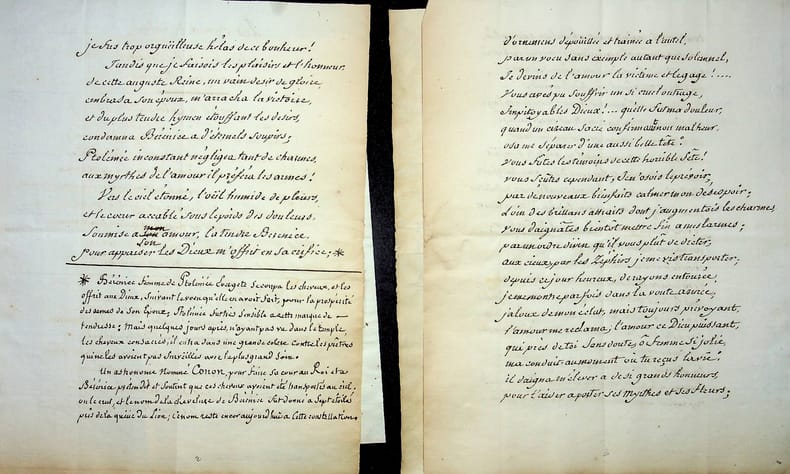 je fus trop orgueilleuse hélas de ce bonheur!
Tandis que je faisois les plaisirs et l'honneur
de cette auguste Reine, un vain desir de gloire,
embrasa son époux, m'arracha la victoire,
et du plus tendre hymen étouffant les desirs,
condamna Bérénice a d'éternels soupirs;
Ptolémée inconstant négligea tant de charmes,
aux myrthes de l'amour il préfera les armes!
Vers le ciel étonné, l'oeil humide de pleurs,
et le coeur accablé sous le poids des douleurs.
Soumise a mon amour, la tendre Bérénice
son
pour appaiser les Dieux m'offrit en sacrifice; *
* Bérénice femme de Ptolémée Evergete se coupa les cheveux, et les
offrit aux Dieux, suivant le voeu qu'elle en avoit fait, pour la prosperité
des armes de son Epoux; Ptolémée fut très sensible a cette marque de
tendresse: mais quelques jours après, n'ayant pas vu dans le temple,
les cheveux consacrés, il entra dans une grande colere contre les prêtres
qui ne les avoient pas surveillés avec le plus grand soin.
Un astronome nommé Conon, pour faire sa cour au Roi et a
Bérénice, prétendit et soutint que ces cheveux avoient été transportés au ciel.
on le crut, et le nom de la chevelure de Bérénice fut donné a sept etoiles
près de la queue du Lion; Ce nom reste encor aujourd'hui a cette constellation.
2
D'ornemens dépouillée et trainée a l'autel,
par un voeu sans exemple autant que solannel,
Je devins de l'amour la victime et le gage!....
Vous avés pu souffrir un si cruel outrage,
Impitoyables Dieux!... qu'elle fut ma douleur,
quand un ciseau sacré confirmant mon malheur,
osa me séparer d'une aussi belle tête!
vous futes les temoins de cette horrible fête!
vous sçutes cependant, Je n'osois le prévoir,
par de nouveaux bienfaits calmer mon desespoir;
Loin des brillans attraits dont j'augmentois les charmes,
Vous daignates bientôt mettre fin a mes larmes;
par un ordre divin qu'il vous plut de dicter,
aux cieux, par les Zéphirs je me vis transporter;
depuis ce jour heureux, de rayons entourée,
je me montre par fois dans la voute azurée,
jalouse de mon éclat, mais toujours prévoyant,
l'amour me reclama; l'amour ce Dieu puissant,
qui près de toi sans doute, ô femme si jolie,
m'a conduit au moment où tu reçus la vie!
il daigna m'élever a de si grands honneurs,
pour t'aider a porter ses myrthes et ses fleurs;